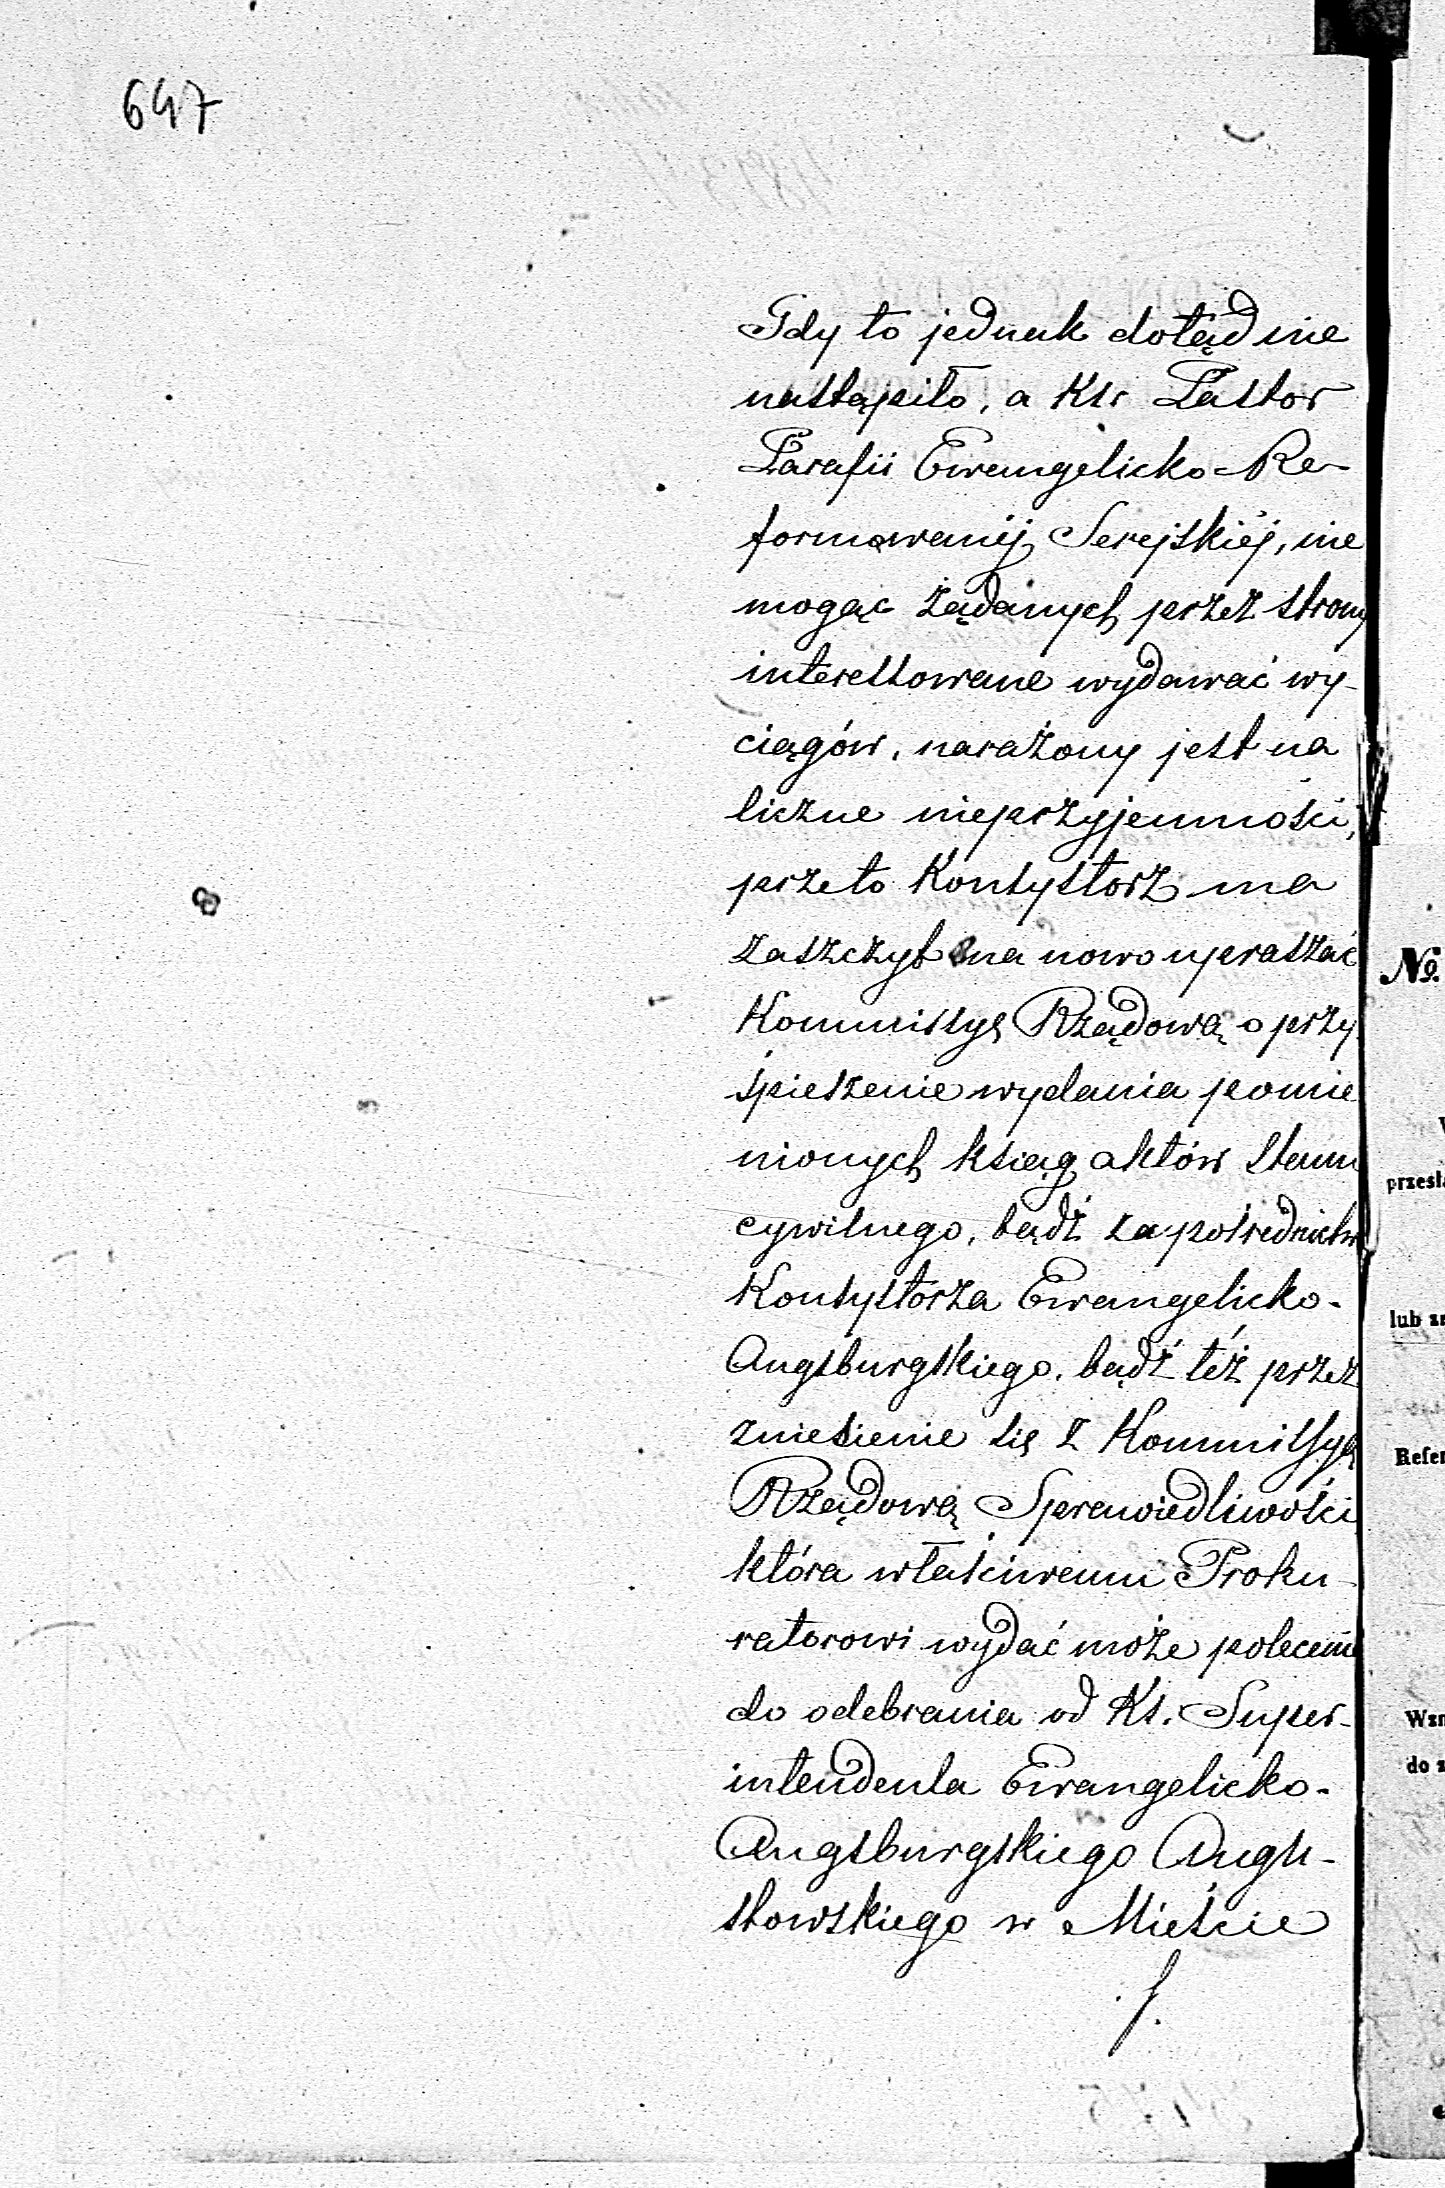 647
Gdy to jednak dotąd nie
nastąpiło, a Ks. Pastor
Parafii Ewangelicko-Re-
formowanéj Serejskiéj, nie
mogąc żądanych przez strony
interessowane wydawać wy-
ciągów, narażony jest na
liczne nieprzyjemności,
przeto Konsystorz ma
zaszczyt na nowo upraszać
Kommissyę Rządową o przy
śpieszenie wydania pomie
nionych ksiąg aktów stanu
cywilnego, bądź za pośrednictw
Konsystorza Ewangelicko-
Augsburgskiego, bądź téż przez
zniesienie się z Kommissyą
Rządową Sprawiedliwości
która właściwemu Proku-
ratorowi wydać może polecenie
do odebrania od Ks. Super-
intendenta Ewangelicko-
Augsburgskiego Augu-
stowskiego w Mieście
./.
No.
przesła
lub zn
Refer
Wzn
do z